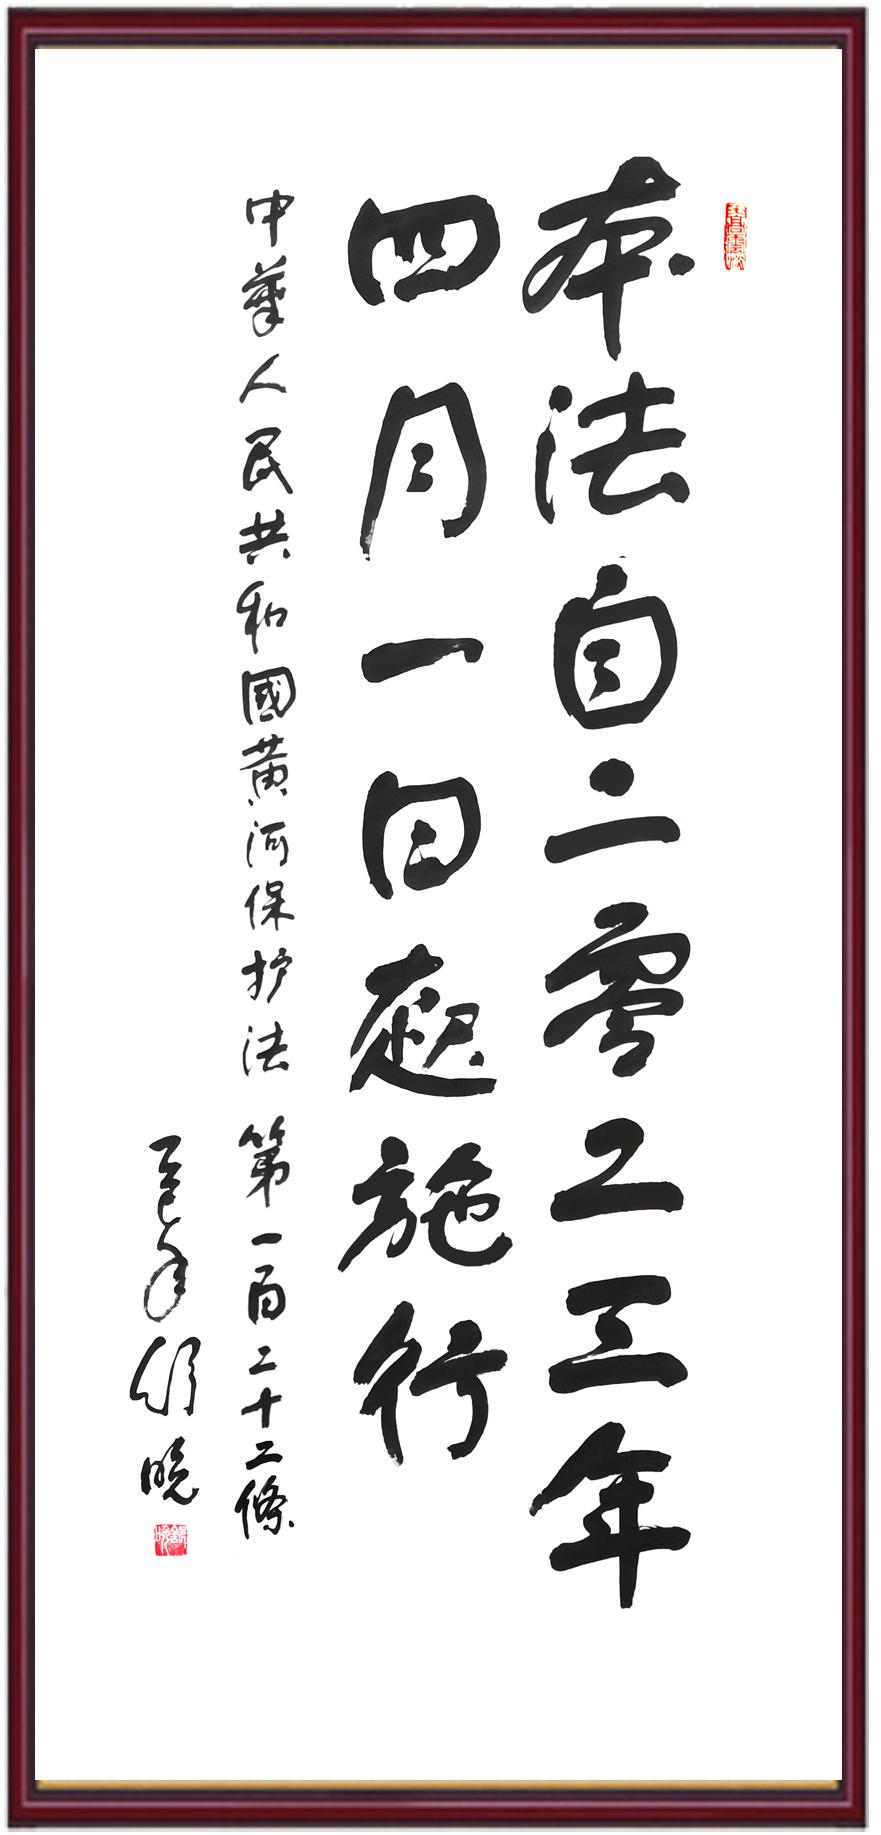 本法自二零二三年
四月一日起施行
中華人民共和國黄河保护法 第一百二十二條
乙巳年 舒晓